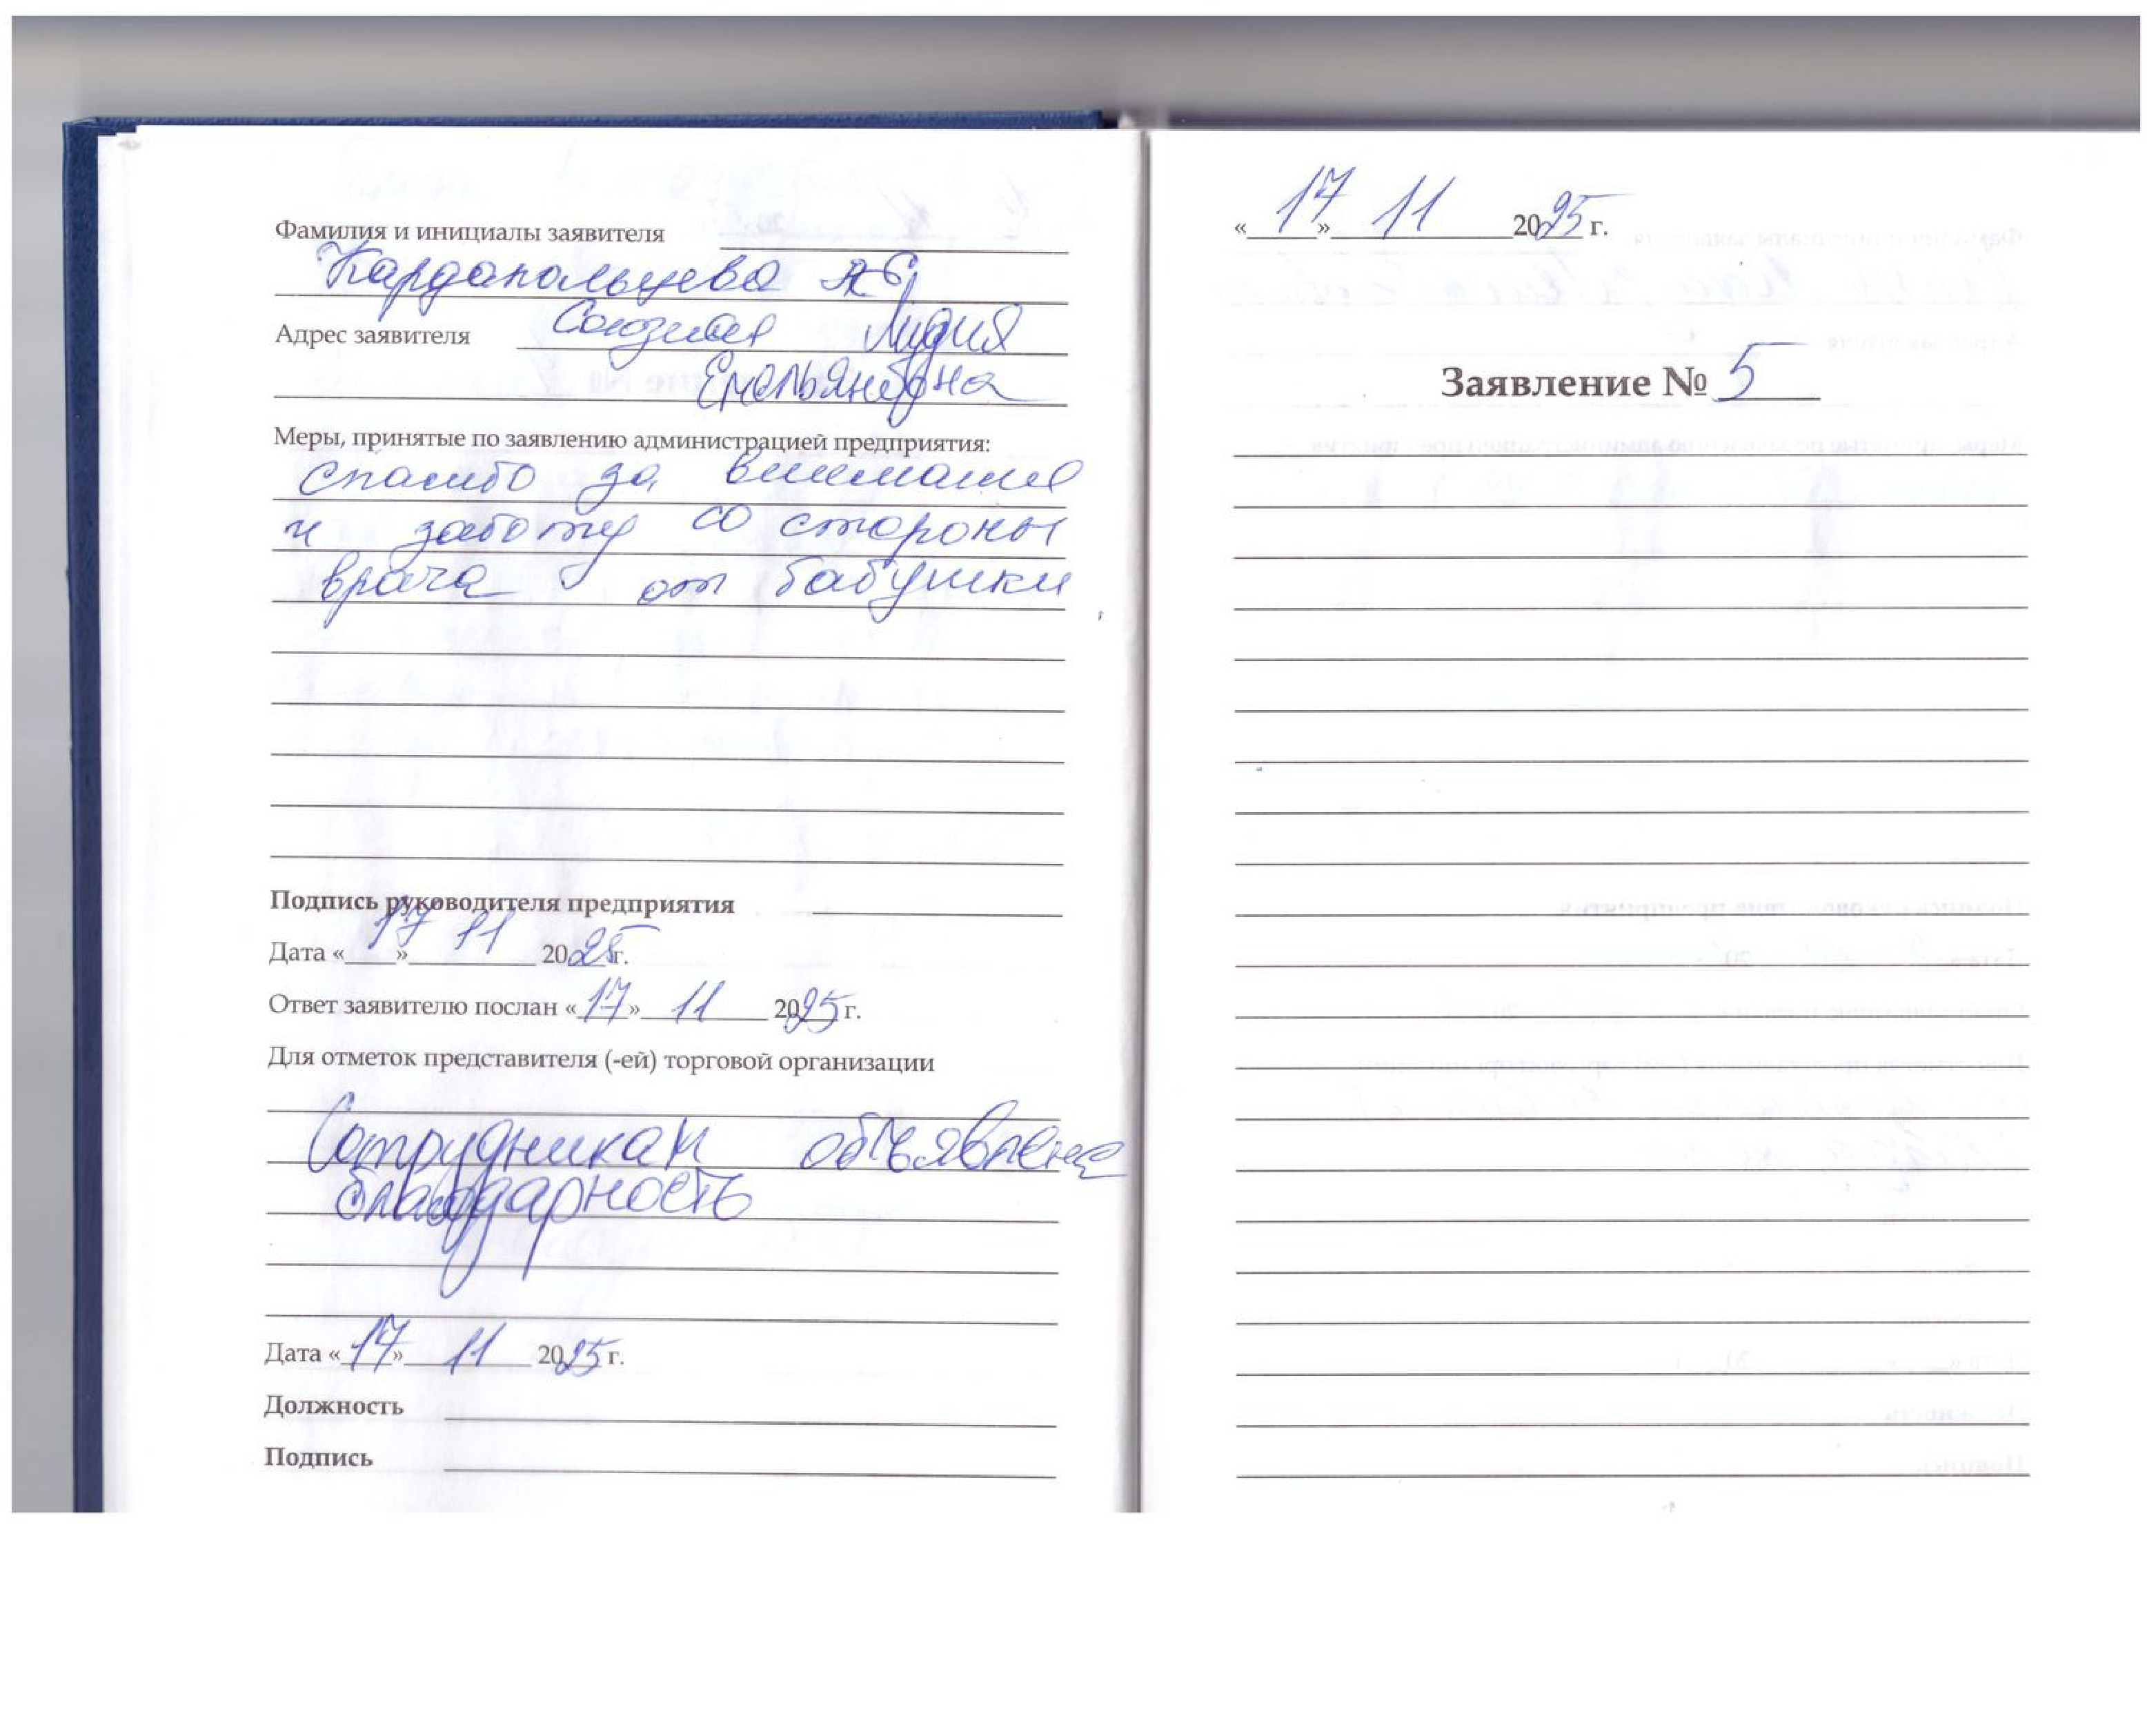 Фамилия и инициалы заявителя
Кардапольцева
Адрес заявителя Лидия
Емельяновна
Меры, принятые по заявлению администрацией предприятия:
спасибо за внимание
и заботу со стороны
врача от бабушки
Подпись руководителя предприятия
Дата «17» 11 2025 г.
Ответ заявителю послан «17» 11 2025 г.
Для отметок представителя (-ей) торговой организации
Сотрудникам объявлена
благодарность
Дата «17» 11 2025 г.
Должность
Подпись
«17» 11 2025 г.
Заявление № 5